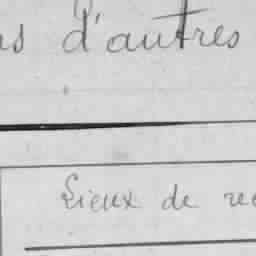 d'autres
Lieux de